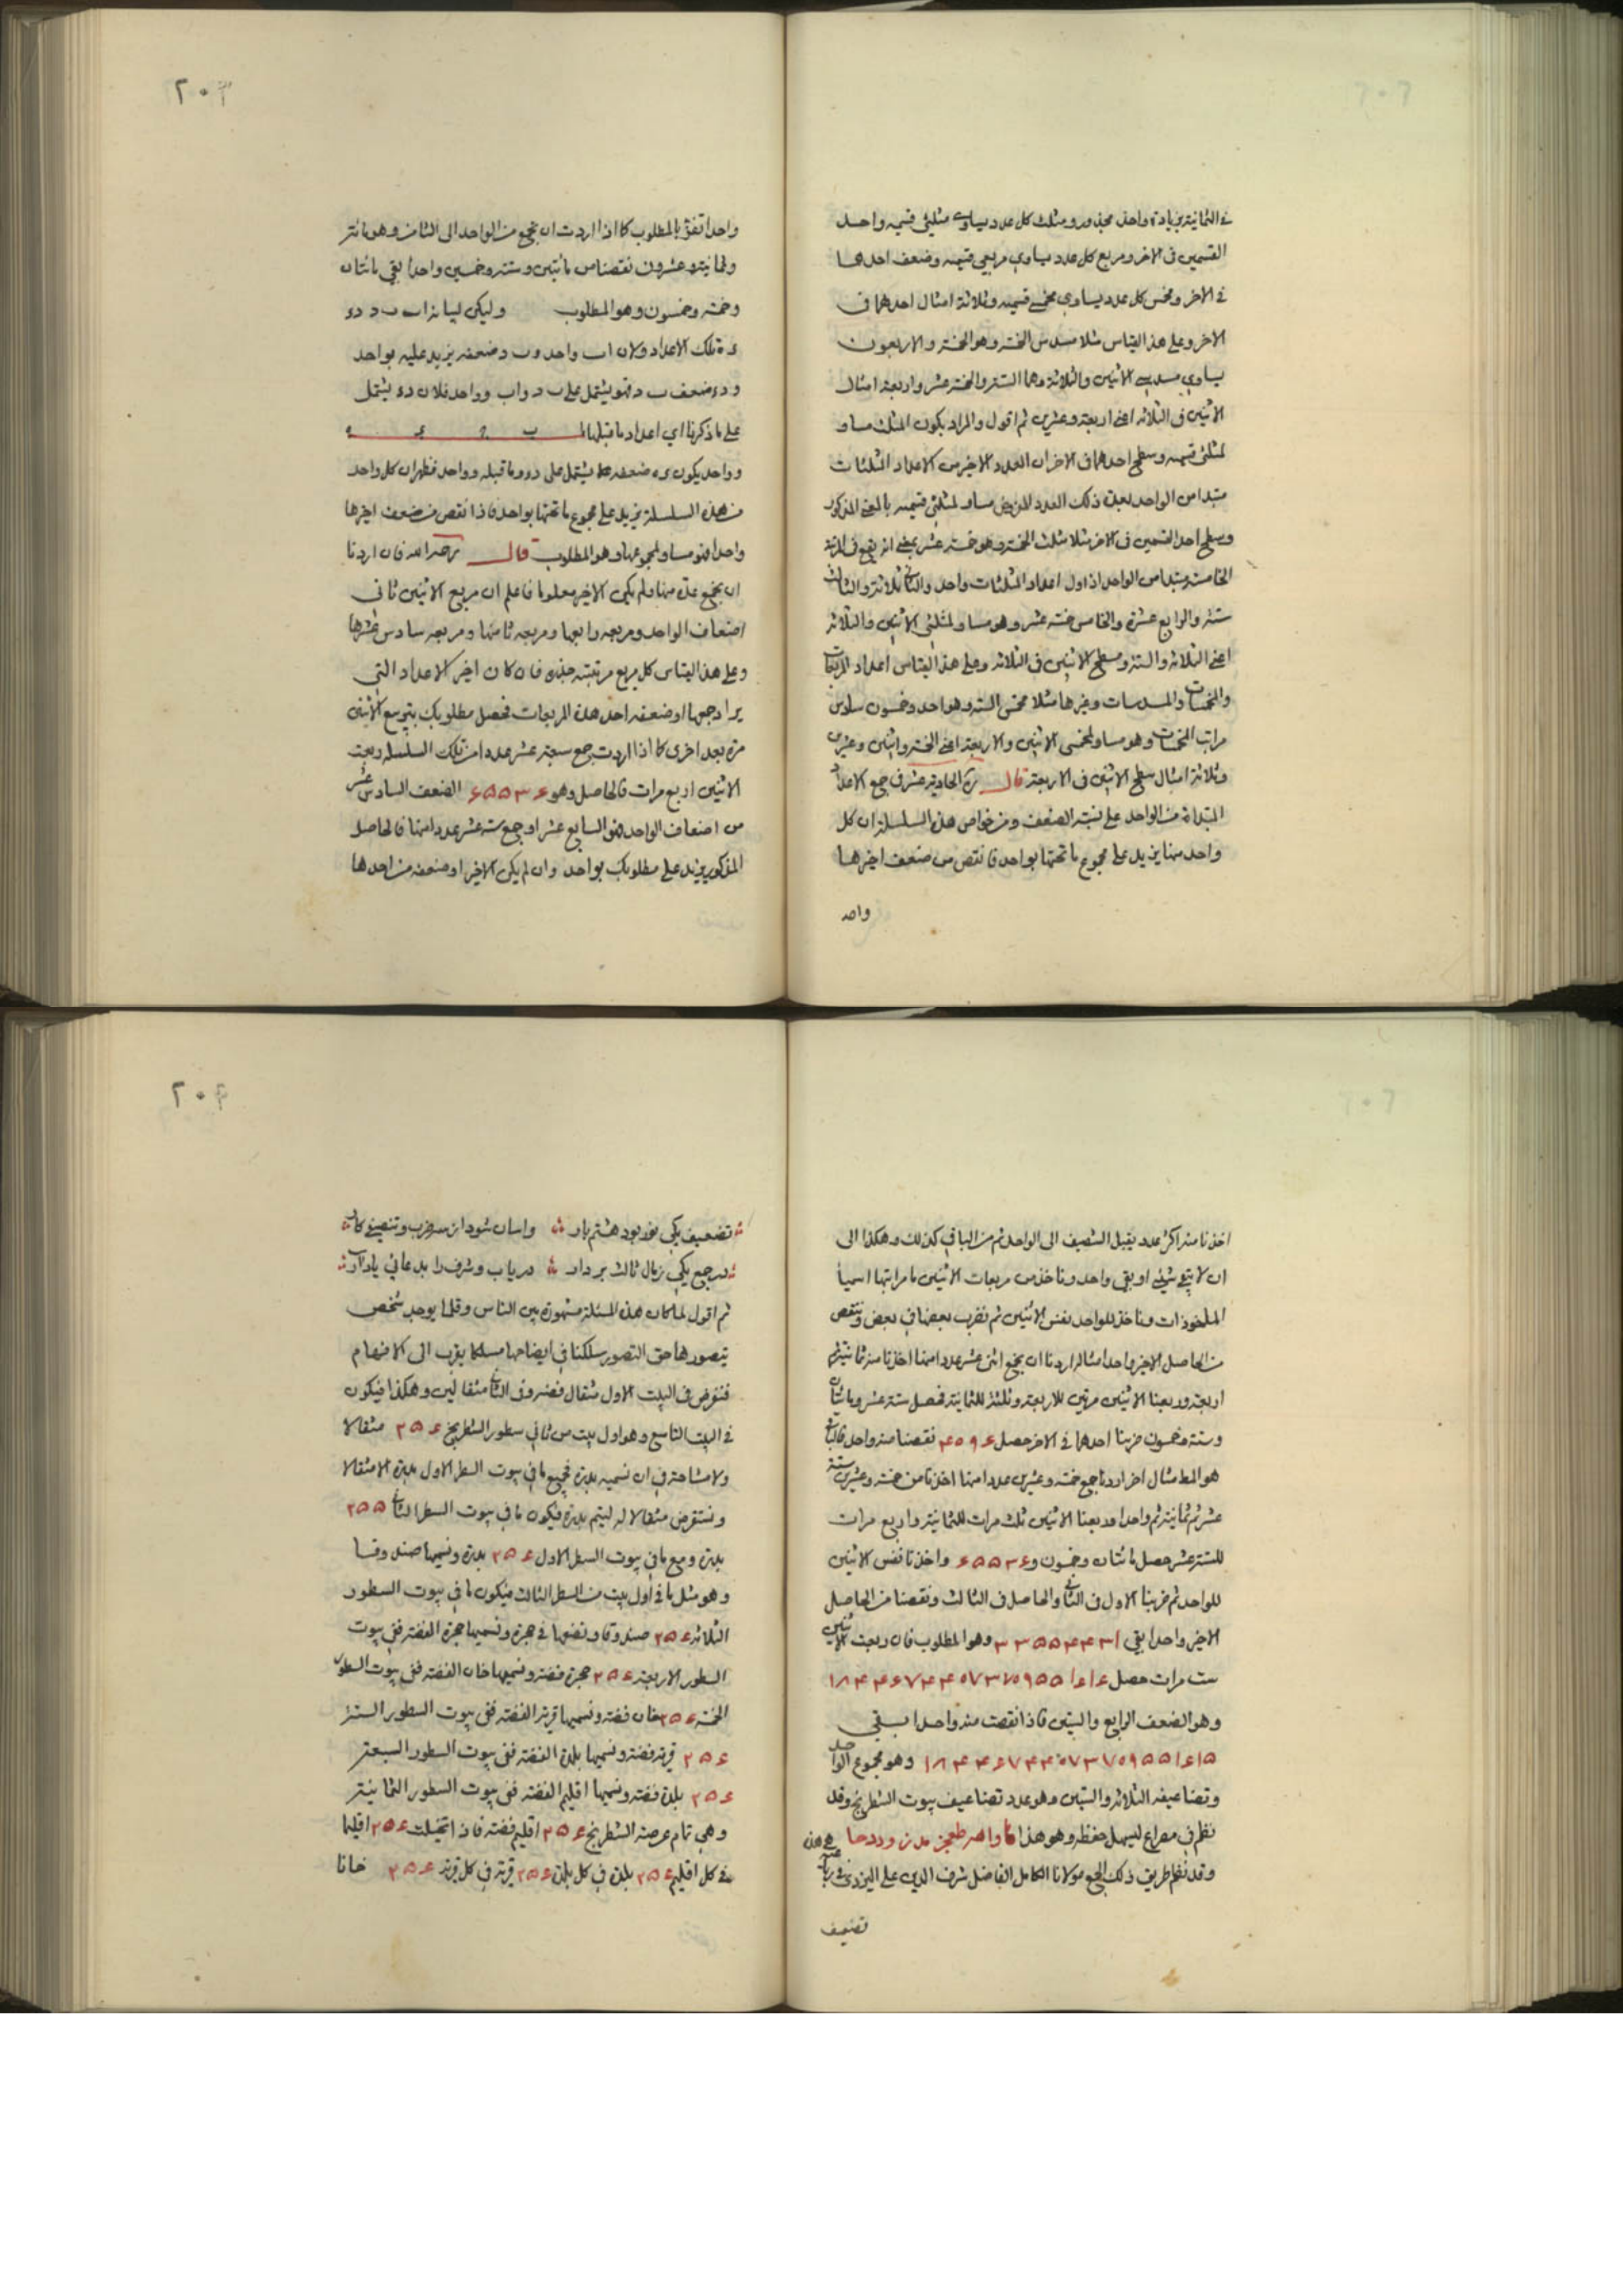 في الثمانية بزيادة واحد مجذور ومثلث كل عدد يساوي مثلثي قسميه واحد
القسمين في الاخر ومربع كل عدد يساوي مربعي قسميه وضعف احدهما
في الاخر ومخمس كل عدد يساوي مخمسي قسميه وثلاثة امثال احدهما في
الاخر وعلى هذا القياس مثلا مسدس الخمسة وهو الخمسة والاربعون
يساوي مسدسي الاثنين والثلاثة وهما الستة والخمسة عشر واربعة امثال
الاثنين في الثلاثة اعني اربعة وعشرين ثم اقول والمراد بكون المثلث مساو
لمثلثي قسميه وسطح احدهما في الاخر ان العدد الاخير من الاعداد المثلثات
مبتدا من الواحد بعدة ذلك العدد المفروض مساو لمثلثي قسميه بالمعنى المذكور
وسطح احد القسمين في الاخر مثلا مثلث الخمسة وهو خمسة عشر بمعنى انه يقع في المرتبة
الخامسة مبتدا من الواحد اذ اول اعداد المثلثات واحد والثاني ثلاثة والثالث
ستة والرابع عشرة والخامس خمسة عشر وهو مساو لمثلثي الاثنين والثلاثة
اعني الثلاثة والستة ومسطح الاثنين في الثلاثة وعلى هذا القياس اعداد المربعات
والمخمسات والمسدسات وغيرها مثلا مخمس الستة وهو احد وخمسون سادس
مراتب المخمسات وهو مساو لمخمسي الاثنين والاربعة اعني الخمسة واثنين وعشرين
وثلاثة امثال سطح الاثنين في الاربعة قال ره الحادية عشر في جمع الاعداد
المبتداة من الواحد على نسبة الضعف ومن خواص هذه السلسلة ان كل
واحد منها يزيد على مجموع ما تحتها بواحد فانقص من ضعف اخيرها
واحد
٢٠٣
واحدا تفز بالمطلوب كما اذا اردت ان تجمع من الواحد الى الثامن وهو مائة
وثمانية وعشرون نقصنا من مائتين وستة وخمسين واحدا بقي مائتان
وخمسة وخمسون وهو المطلوب وليكن لبيانه اب ب د دء
ءه تلك الاعداد ولان اب واحد وب د ضعفه يزيد عليه بواحد
و دء ضعف ب د فهو يشتمل على ب د واب وواحد فلان دء يشتمل
على ما ذكرنا اي اعداد ما قبلها
وواحد يكون ءه ضعفه يشتمل على دء وما قبله وواحد فظهر ان كل واحد
من هذه السلسلة يزيد على مجموع ما تحتها بواحد فاذا نقص من ضعف اخيرها
واحد فهو مساو لمجموعها وهو المطلوب قال رحمه الله فان اردنا
ان نجمع عدة منها ولم يكن الاخير معلوما فاعلم ان مربع الاثنين ثاني
اضعاف الواحد ومربعه رابعها ومربعه ثامنها ومربعه سادس عشرها
وعلى هذا القياس كل مربع مرتبته جذره فان كان اخير الاعداد التي
يراد جمعها او ضعفه احد هذه المربعات فحصل مطلوبك بتربيع الاثنين
مرة بعد اخرى كما اذا اردت جمع سبعة عشر عددا من تلك السلسلة ربعت
الاثنين اربع مرات فالحاصل وهو ٦٥٥٣٦ الضعف السادس عشر
من اضعاف الواحد فهو السابع عشر او جمع ستة عشر عددا منها فالحاصل
المذكور يزيد على مطلوبك بواحد وان لم يكن الاخير او ضعفه من احدها
اخذنا منه اكثر عدد يقبل التنصيف الى الواحد ثم من الباقي كذلك وهكذا الى
ان لا يبقى شيء او بقي واحد وناخذ من مربعات الاثنين ما مراتبها اسميا
الماخوذات وناخذ للواحد نفس الاثنين ثم نضرب بعضها في بعض وننقص
من الحاصل الاخير واحدا مثاله اردنا ان نجمع اثني عشر عددا منها اخذنا منه ثمانية ثم
اربعة وربعنا الاثنين مرتين للاربعة وثلثة للثمانية فحصل ستة عشر ومايتان
وستة وخمسون ضربنا احدهما في الاخر حصل ٤٠٩٦ نقصنا منه واحد فالباقي
هو المط مثال اخر اردنا جمع خمسة وعشرين عددا منها اخذنا من خمسة وعشرين ستة
عشر ثم ثمانية ثم واحدا وربعنا الاثنين ثلث مرات للثمانية واربع مرات
للستة عشر حصل مائتان وخمسون و٦٥٥٣٦ واخذنا نفس الاثنين
للواحد ثم ضربنا الاول في الثاني والحاصل في الثالث ونقصنا من الحاصل
الاخير واحدا بقي ٣٣٥٥٤٤٣١ وهو المطلوب فان ربعت الاثنين
ست مرات حصل ١٨٤٤٦٧٤٤٠٧٣٧٠٩٥٥١٦١٦
وهو الضعف الرابع والستين فاذا نقصت منه واحدا يبقي
١٨٤٤٦٧٤٤٠٧٣٧٠٩٥٥١٦١٥ وهو مجموع الواحد
وتضاعيفه الثلاثة والستين وهو عدد تضاعيف بيوت الشطرنج وقد
نظم في مصراع ليسهل حفظه وهو هذا
وقد نظم طريق ذلك الجمع مولانا الكامل الفاضل شرف الدين علي اليزدي في رباعية هي هذه
تضعيف
٢٠٤
تضعيف يكي بود هشتم بار واسان شود از ضرب وتنصيف كار
در جمع يكي زمال ثالث بردار درياب وشرف را بدعائي ياد آر
ثم اقول لما كان هذه المسئلة مشهورة بين الناس وقلما يوجد شخص
يتصورها حق التصور سلكنا في ايضاحها مسلكا يقرب الى الافهام
فنفرض في البيت الاول مثقال فضة وفي الثاني مثقالين وهكذا فيكون
في البيت التاسع وهو اول بيت من ثاني سطور الشطرنج ٢٥٦ مثقالا
ولا مشاحة في ان نسميه بدرة فجميع ما في بيوت السطر الاول بدرة الا مثقالا
ونستقرض مثقالا له ليتم بدرة فيكون ما في بيوت السطر الثاني ٢٥٥
بدرة ومع ما في بيوت السطر الاول ٢٥٦ بدرة ونسميها صندوقا
وهو مثل ما في اول بيت من السطر الثالث فيكون ما في بيوت السطور
الثلاثة ٢٥٦ صندوقا ونضعها في حجرة ونسميها حجرة الفضة ففي بيوت
السطور الاربعة ٢٥٦ حجرة فضة ونسميها خان الفضة ففي بيوت السطور
الخمسة ٢٥٦ خان فضة ونسميها قرية الفضة ففي بيوت السطور الستة
٢٥٦ قرية فضة ونسميها بلدة الفضة ففي بيوت السطور السبعة
٢٥٦ بلدة فضة ونسميها اقليم الفضة ففي بيوت السطور الثمانية
وهي تمام عرصة الشطرنج ٢٥٦ اقليم فضة فاذا تخيلت ٢٥٦ اقليما
في كل اقليم ٢٥٦ بلدة في كل بلدة ٢٥٦ قرية في كل قرية ٢٥٦ خانا